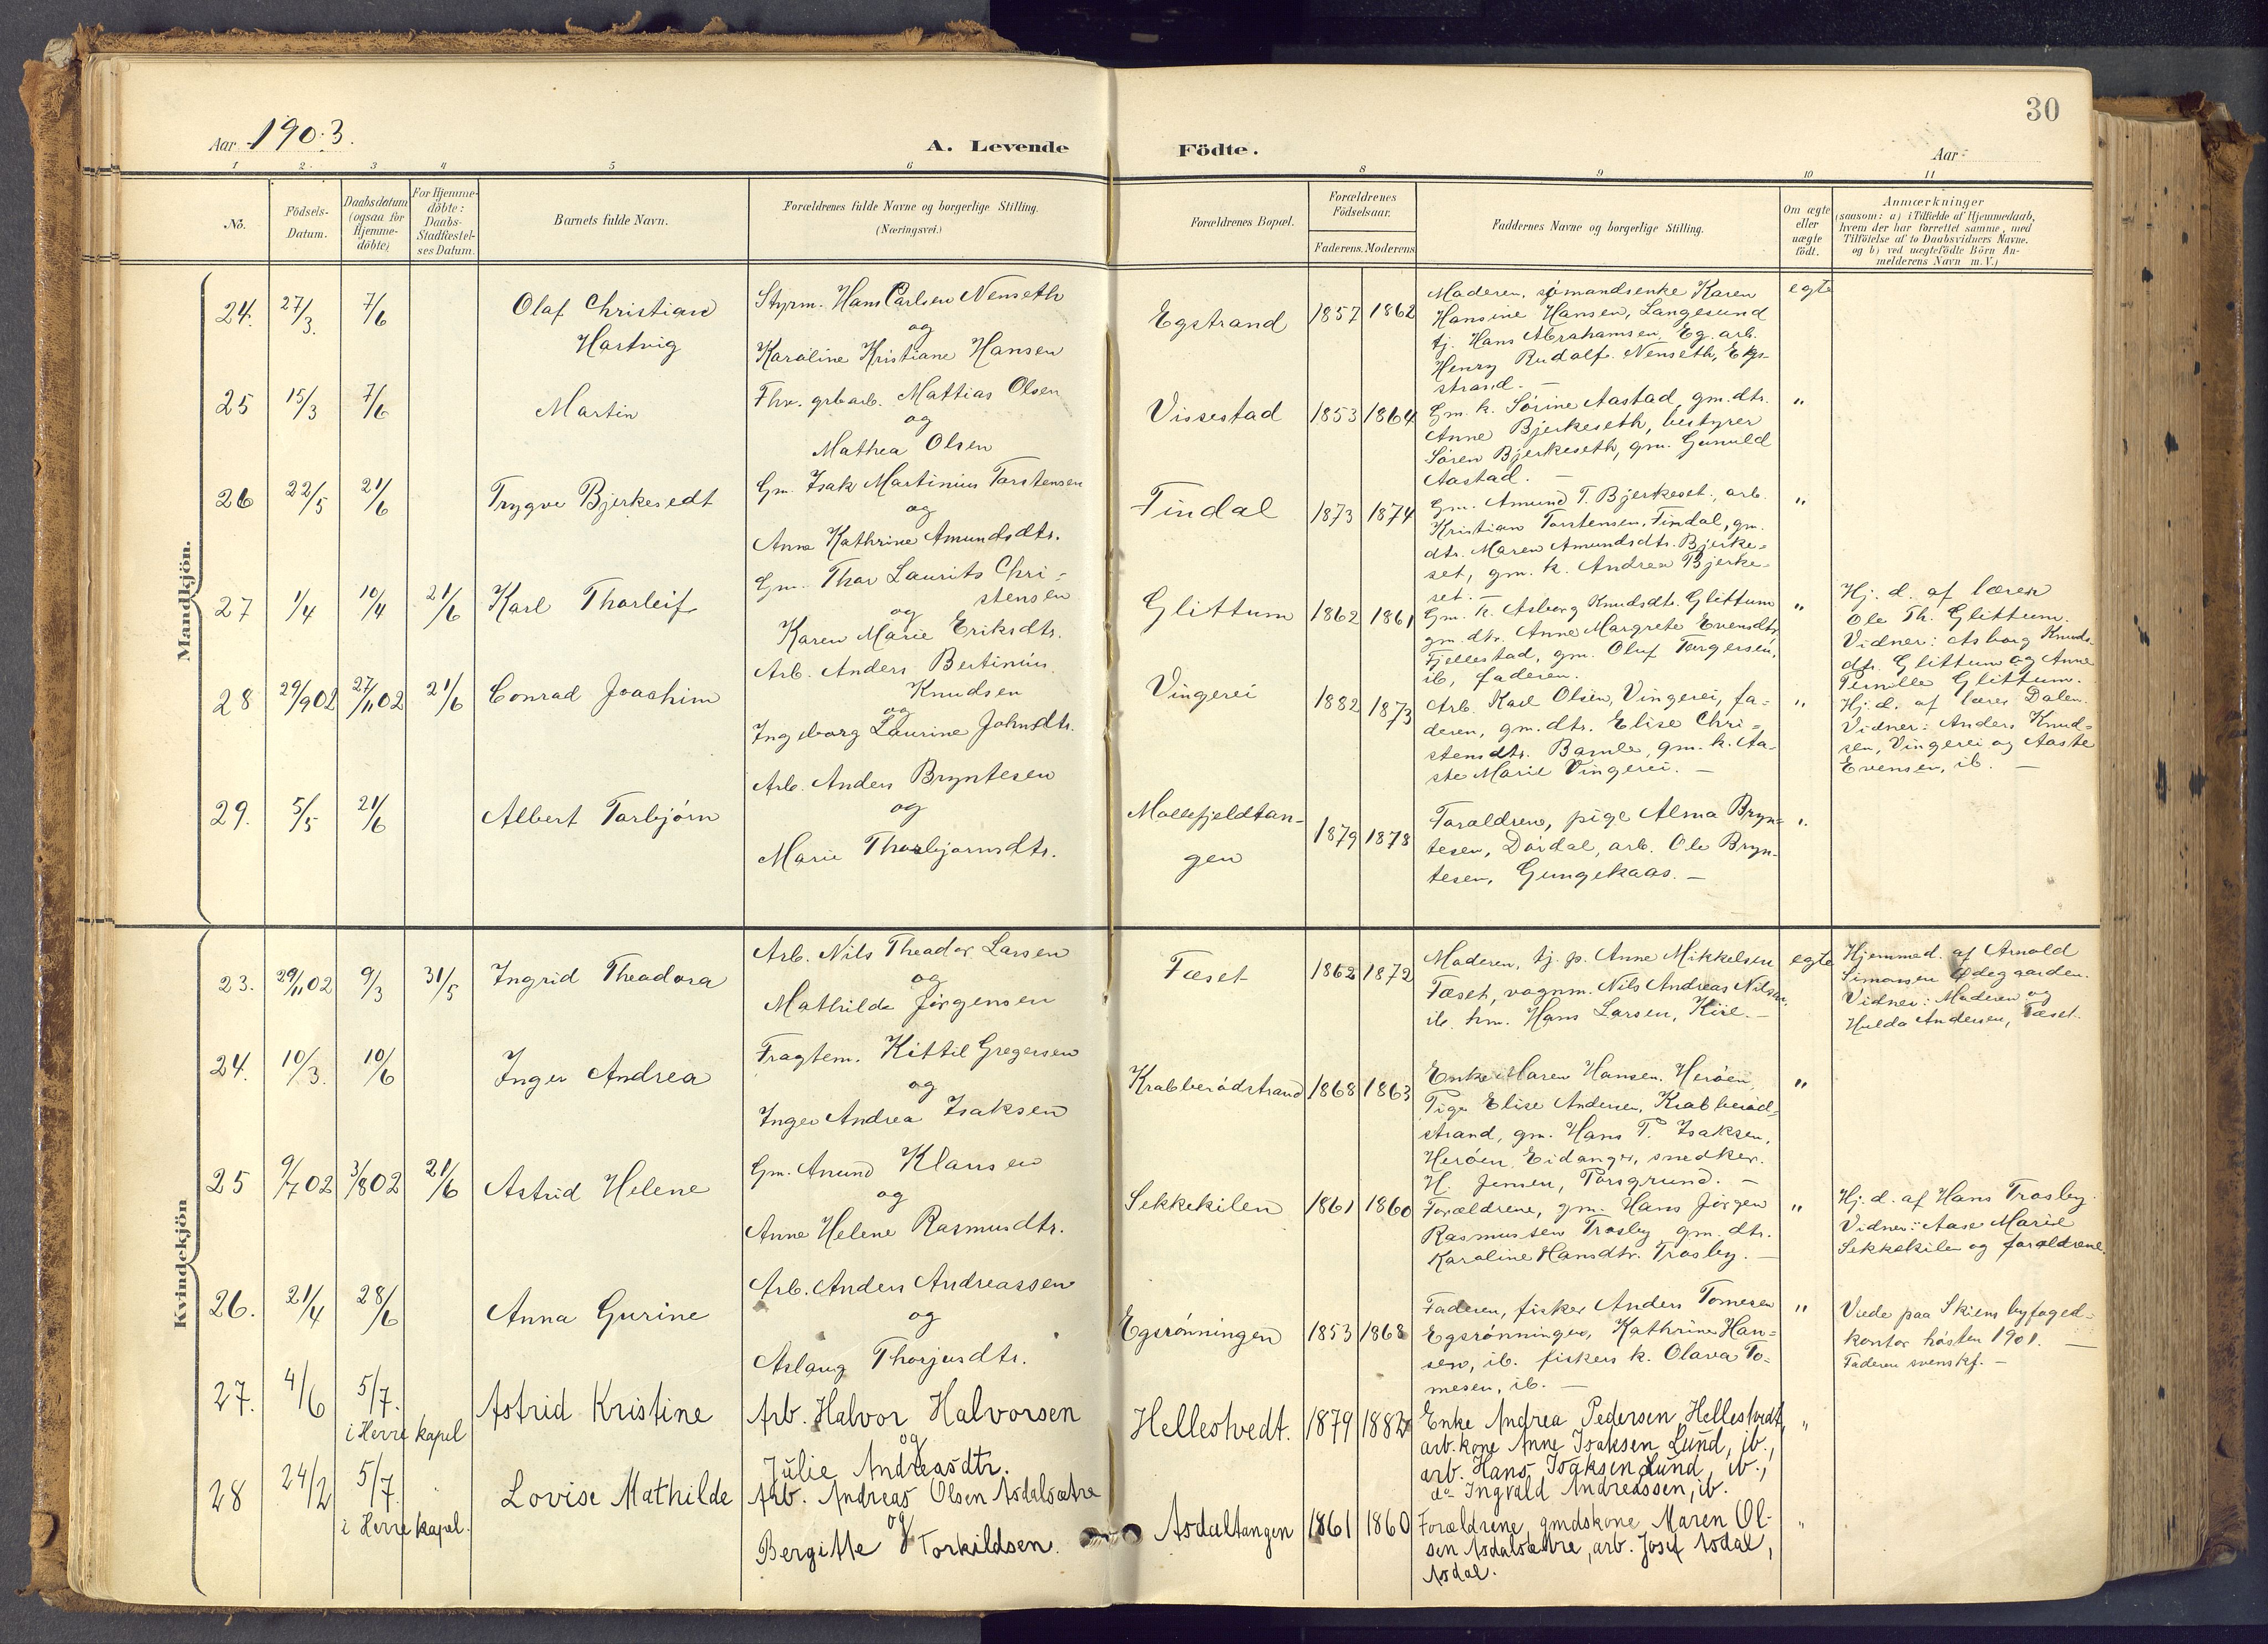 30
Aar 1903.
A. Levende Födte.
Aar
1 2 3 4 5 6 8 9 10 11
No.
Födsels-
Datum.
Daabsdatum
(ogsaa for
Hjemme-
döbte)
For Hjemme-
döbte:
Daabs-
Stadfæstel-
ses Datum.
Barnets fulde Navn.
Forældrenes fulde Navne og borgerlige Stilling.
(Næringsvei.)
Forældrenes Bopæl.
Forældrenes
Födselsaar.
Faderens. Moderens
Faddernes Navne og borgerlige Stilling.
Om ægte
eller
uægte
födt.
Anmærkninger
(saasom: a) i Tilfælde af Hjemmedaab,
hvem der har forrettet samme, med
Tilföielse af to Daabsvidners Navne.
og b) ved uægtefödte Börn An-
melderens Navn m.V.)
Mandkjön.
24. 27/3. 7/6
Olaf Christian
Hartvig
Styrm. Hans Carlsen Nenseth
og
Karoline Kristiane Hansen
Egstrand 1857 1862
Moderen, sømandsenke Karen
Hansine Hansen, Langesund
tj. Hans Abrahamsen Eg. arb.
Henry Rudolf Nenseth, Eg-
strand. —
egte
25 15/3 7/6
Martin
Fhv. grbarb. Mattias Olsen
og
Mathea Olsen
Vissestad 1853 1864
Gm. k. Sørine Aastad, gm. dtr.
Anne Bjerkeseth, bestyrer
Søren Bjerkeseth, gm. Gunuld
Aastad. —
"
26 22/5 21/6
Trygve Bjerkesedt
Gm. Isak Martinius Torstensen
og
Anne Kathrine Amundsdtr.
Findal 1873 1874
Gm. Amund T. Bjerkeset, arb.
Kristian Torstensen, Findal, gm.
dtr. Maren Amundsdtr. Bjerke-
set, gm. k. Andrea Bjerke-
set. —
"
27 1/4 10/4 21/6
Karl Thorleif
Gm. Thor Laurits Chri-
stensen
og
Karen Marie Eriksdtr.
Glittum 1862 1861
Gm. k. Asborg Knudsdtr. Glittum
gm. dtr. Anne Margrete Evensdtr.
Fjellestad, gm. Oluf Torgersen,
ib, faderen.
"
Hj. d. af lærer
Ole Th. Glittum.
Vidner: Asborg Knuds-
dtr. Glittum og Anne
Pernille Glittum.
28 29/9 02 27/11 02 21/6
Conrad Joachim
Arb. Anders Bertinius
Knudsen
og
Ingeborg Laurine Johnsdtr.
Vingerei 1882 1873
Arb. Karl Olsen, Vingerei, fa-
deren, gm. dtr. Elise Chri-
stensdtr. Bamle, gm. k. Aa-
ste Marie Vingerei. —
"
Hj. d. af lærer Dalen.
Vidner: Anders Knud-
sen, Vingerei og Aaste
Evensen, ib. —
29. 5/5 21/6
Albert Torbjørn
Arb. Anders Bryntesen
og
Marie Thorbjørnsdtr.
Mollefjeldtan-
gen
1879 1878
Forældren, pige Alma Bryn-
tesen, Dørdal, arb. Ole Bryn-
tesen, Gungekaas. —
"
Kvindekjön
23. 29/11 02 9/3 31/5
Ingrid Theodora
Arb. Nils Theodor Larsen
og
Mathilde Jørgensen
Fæset 1862 1872
Moderen, tj. p. Anne Mikkelsen
Fæset, vognm. Nils Andreas Nilsen,
ib. hm. Hans Larsen, Kise. —
egte
Hjemmed. af Arnold
Simonsen Ødegaarden.
Vidner: Moderen og
Hulda Andersen, Fæset.
24. 10/3. 10/6
Inger Andrea
Fragtem. Kittil Gregersen
og
Inger Andrea Isaksen
Krabberødstrand 1868 1863
Enke Maren Hansen. Herøen,
Pige Elise Andersen, Krabberød-
strand, gm. Hans T. Isaksen,
Herøen, Eidanger, snedker
H. Jensen, Porsgrund. —
"
25 9/7 02 3/8 02 21/6
Astrid Helene
Gm. Anund Klausen
og
Anne Helene Rasmusdtr.
Sekkekilen 1861 1860
Forældrene, gm. Hans Jørgen
Rasmussen Trosby, gm. dtr.
Karoline Hansdtr. Trosby. —
"
Hj. d. af Hans Trosby.
Vidner: Aase Marie
Sekkekilen og forældrene.
26. 21/4 28/6
Anna Gurine
Arb. Anders Andreassen
og
Aslaug Thorjusdtr.
Egsrønningen 1853 1868
Faderen, fisker Anders Tomesen
Egsrønningen, Kathrine Han-
sen, ib. fiskers k. Olava To-
mesen, ib. —
"
Viede paa Skiens byfoged-
kontor høsten 1901. —
Faderen svenskf. —
27. 4/6 5/7.
i Herre kapel
Astrid Kristine
Arb. Halvor Halvorsen
og
Julie Andreasdtr.
Hellestvedt. 1879 1882
Enke Andrea Pedersen Hellestvedt,
arb. kone Anne Isaksen Lund, ib.,
arb. Hans Isaksen Lund, ib.,
do Ingvald Andreassen, ib.
"
28 24/2 5/7.
i Herre kapel.
Lovise Mathilde
Arb. Andreas Olsen Asdalsætre
og
Bergitte Torkildsen.
Asdaltangen 1861 1860
Forældrene, gmdskone Maren Ol-
sen Asdalsætre, arb. Josef Asdal,
Asdal.
"